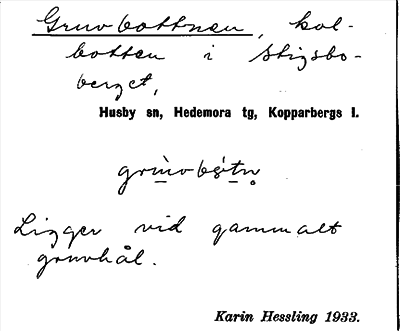 Gruvbottnen, kol-
botten i Stigsbo-
berget,
Husby sn, Hedemora tg, Kopparbergs l.
Ligger vid gammalt
gruvhål.
Karin Hessling 1933.